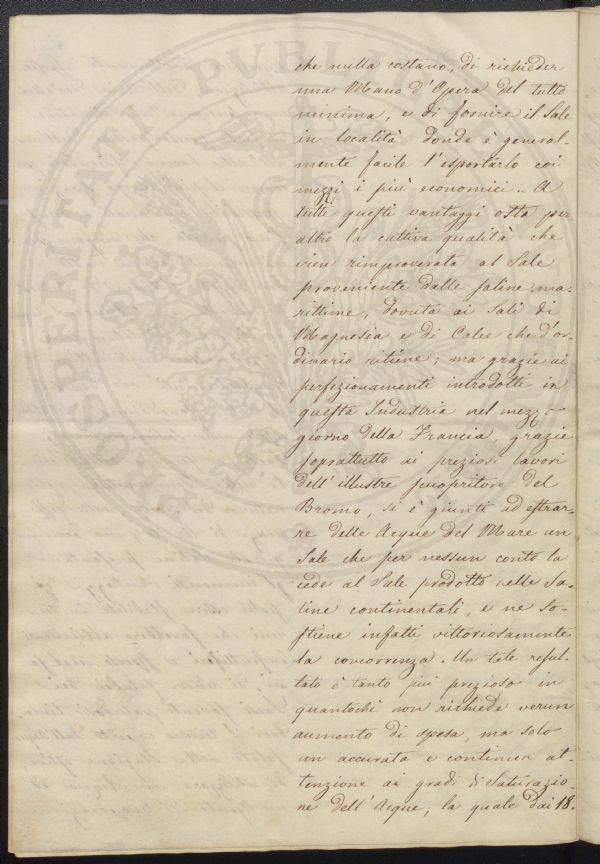 che nulla costano, di richieder
una Mano d'Opera del tutto
minima, e di fornire il Sale
in località donde è general-
mente facile l'esportarlo coi
mezzi i più economici. A
tutti questi vantaggi osta per
altro la cattiva qualità che
vien rimproverata al Sale
proveniente dalle saline ma-
rittime, dovuta ai Sali di
Magnesia e di Calce che d'or-
dinario ritiene; ma grazie ai
perfezionamenti introdotti in
questa Industria nel mezzo-
giorno della Francia, grazie
soprattutto ai preziosi lavori
dell'illustre scuopritore del
Bromo, si è giunti ad estrar-
re delle Acque del Mare un
Sale che per nessun conto la
cede al Sale prodotto nelle Sa-
line continentali, e ne so-
stiene infatti vittoriosamente
la concorrenza. Un tale resul-
tato è tanto più prezioso in
quantochè non richiede verun
aumento di spesa, ma solo
un accurata e continua at-
tenzione ai gradi di Saturazio-
ne dell'Acque; la quale dai 18.
PROPRIETATI PUBL